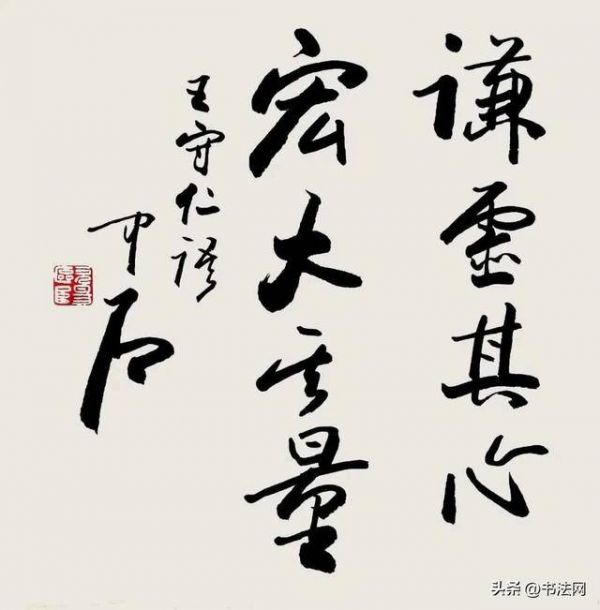 谦虚其心
宏大其量
王守仁语
中石
头条 @书法网